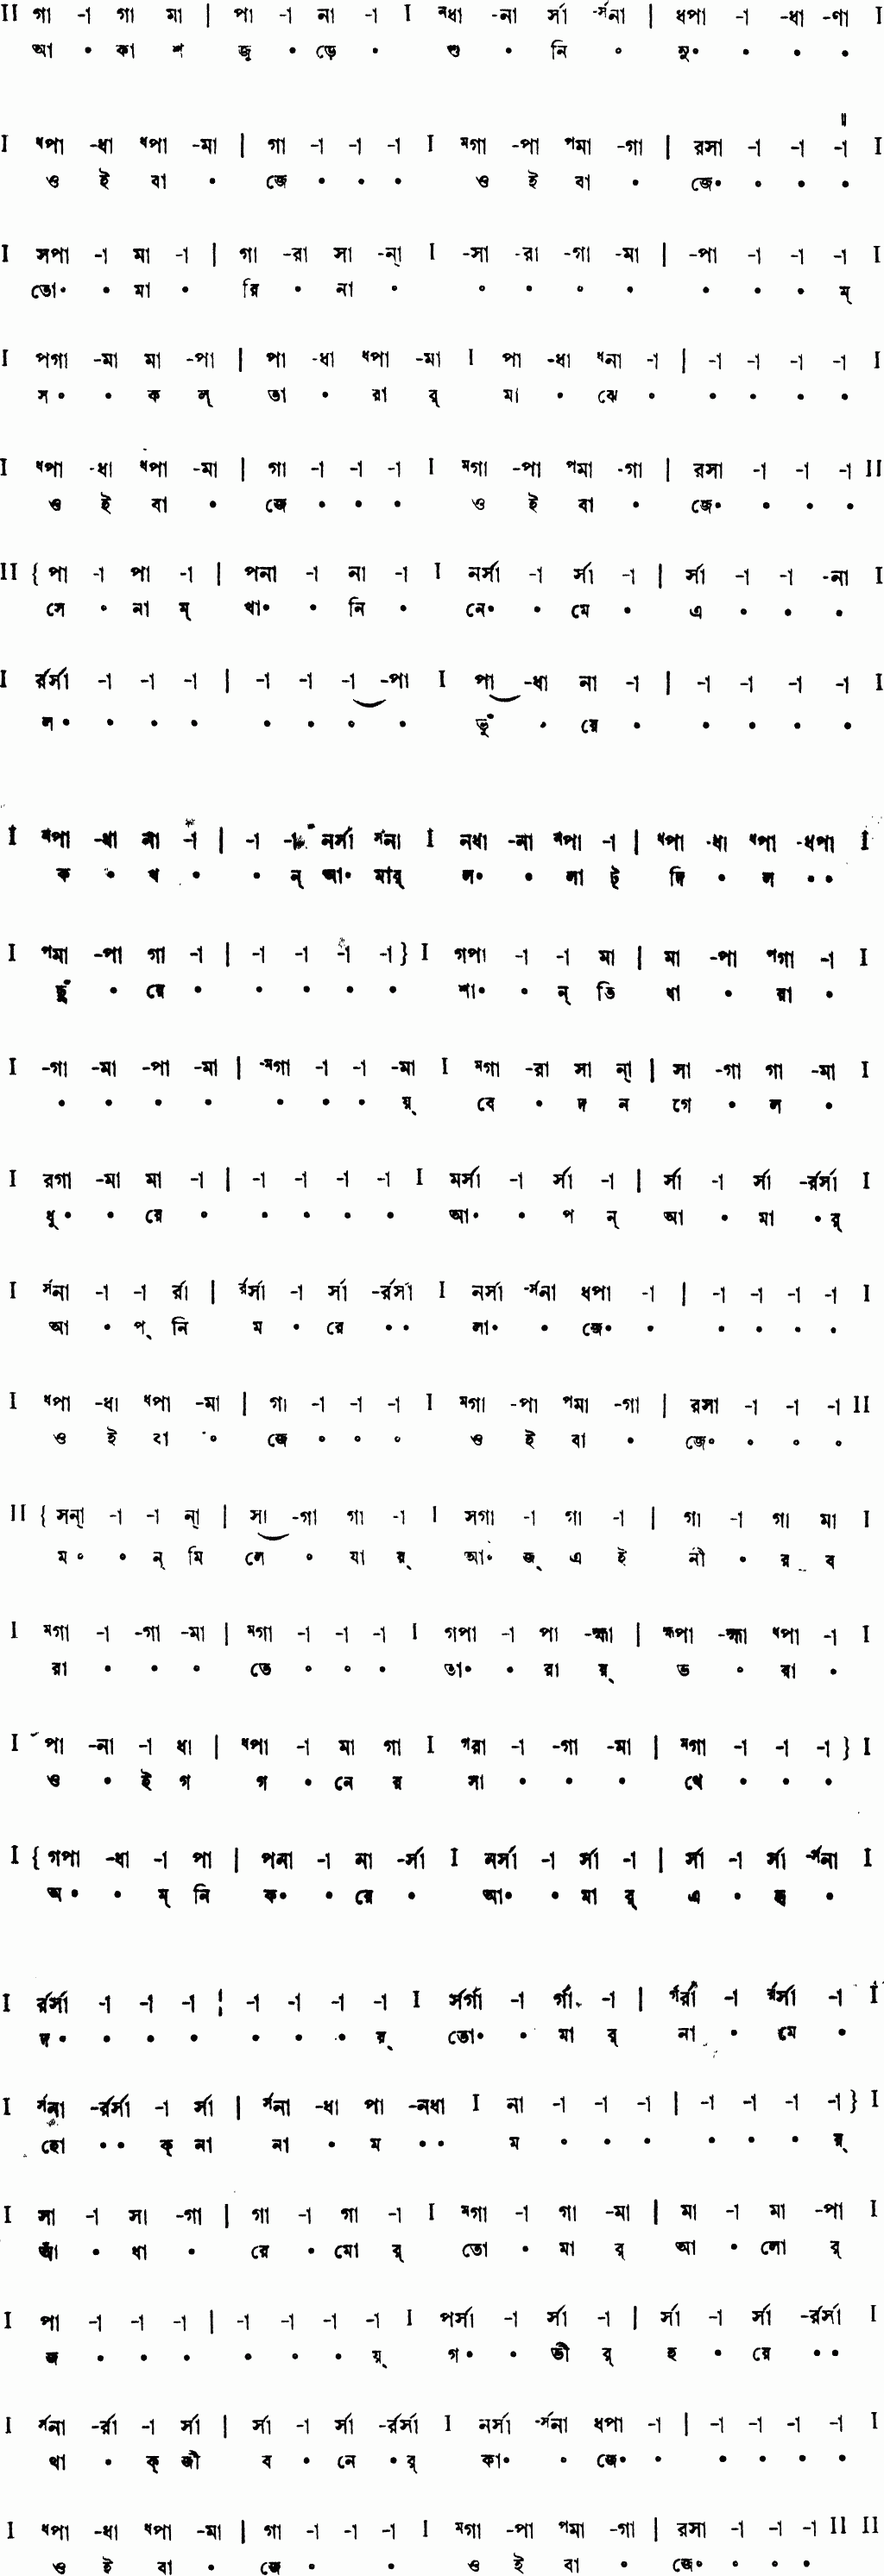 II গা -া গা মা | পা -া না -া I নধা -না র্সা -র্সনা | ধপা -া -ধা -ণা I
আ • কা শ জু • ড়ে • শু • নি ॰ মু• • • •
॥
I ধপা -ধা ধপা -মা | গা -া -া -া I মগা -পা পমা -গা | রসা -া -া -া I
ও ই বা • জে • • • ও ই বা • জে• • • •
I সপা -া মা -া | গা -রা সা -ন্া I -সা -রা -গা -মা | -পা -া -া -া I
তো• • মা • রি • না • ॰ • ॰ • • • • ম্
I পগা -মা মা -পা | পা -ধা ধপা -মা I পা -ধা ধনা -া | -া -া -া -া I
স • • ক ল্ তা • রা র্ মা • ঝে • • • • •
I ধপা -ধা ধপা -মা | গা -া -া -া I মগা -পা পমা -গা | রসা -া -া -া II
ও ই বা • জে • • • ও ই বা • জে• • • •
II { পা -া পা -া | পনা -া না -া I নর্সা -া র্সা -া | র্সা -া -া -না I
সে • না ম্ খা• • নি • নে• • মে • এ • • •
I র্রর্সা -া -া -া | -া -া -া -পা I পা -ধা না -া | -া -া -া -া I
ল • • • • • • • • ভুঁ • য়ে • • • • •
I ধপা -ধা না -া | -া -া নর্সা র্সনা I নধা -না ধপা -া | ধপা -ধা ধপা -ধপা I
ক • খ • • ন্ আ• মার্ ল• • লা ট্ দি • ল • •
I পমা -পা গা -া | -া -া -া -া } I গপা -া -া মা | মা -পা পগা -া I
ছুঁ • য়ে • • • • • শা• • ন্ তি ধা • রা •
I -গা -মা -পা -মা | -মগা -া -া -মা I মগা -রা সা ন্া | সা -গা গা -মা I
• • • • • • • য়্ বে • দ ন গে • ল •
I রগা -মা মা -া | -া -া -া -া I মর্সা -া র্সা -া | র্সা -া র্সা -র্রর্সা I
ধু • • য়ে • • • • • আ• • প ন্ আ • মা • র্
I র্সনা -া -া র্রা | র্রর্সা -া র্সা -র্রর্সা I নর্সা -র্সনা ধপা -া | -া -া -া -া I
আ • প্ নি ম • রে • • লা• • জে• • • • • •
I ধপা -ধা ধপা -মা | গা -া -া -া I মগা -পা পমা -গা | রসা -া -া -া II
ও ই বা • জে ॰ ॰ ॰ ও ই বা • জে• • ॰ ॰
II { সন্া -া -া ন্া | সা -গা গা -া I সগা -া গা -া | গা -া গা মা I
ম ॰ • ন্ মি লে ॰ যা য়্ আ• জ্ এ ই নী • র ব
I মগা -া -গা -মা | মগা -া -া -া I গপা -া পা -হ্মা | হ্মপা -হ্মা ধপা -া I
রা • • • তে ॰ ॰ • তা• • রা য়্ ভ • রা •
I পা -না -া ধা | ধপা -া মা গা I গরা -া -গা -মা | মগা -া -া -া } I
ও • ই গ গ • নে র সা • • • থে • • •
I { গপা -ধা -া পা | পনা -া না -র্সা I নর্সা -া র্সা -া | র্সা -া র্সা -র্সনা I
অ • • ম্ নি ক• • রে • আ• • মা র্ এ • হৃ •
I র্রর্সা -া -া -া | -া -া -া -া I র্সর্গা -া র্গা -া | র্গর্রা -া র্রর্সা -া I
দ • • • • • • • য়্ তো• • মা র্ না • মে •
I র্সনা -র্রর্সা -া র্সা | র্সনা -ধা পা -নধা I না -া -া -া | -া -া -া -া } I
হো • • ক্ না না • ম • • ম • • • • • • য়্
I সা -া সা -গা | গা -া গা -া I মগা -া গা -মা | মা -া মা -পা I
আঁ • ধা • রে • মো র্ তো • মা র্ আ • লো র্
I পা -া -া -া | -া -া -া -া I পর্সা -া র্সা -া | র্সা -া র্সা -র্রর্সা I
জ • • • • • • য়্ গ • • ভী র্ হ • য়ে • •
I র্সনা -র্রা -া র্সা | র্সা -া র্সা -র্রর্সা I নর্সা -র্সনা ধপা -া | -া -া -া -া I
থা • ক্ জী ব • নে • র্ কা• • জে• • • • • •
I ধপা -ধা ধপা -মা | গা -া -া -া I মগা -পা পমা -গা | রসা -া -া -া II II
ও ই বা • জে • • ও ই বা • জে• • • •